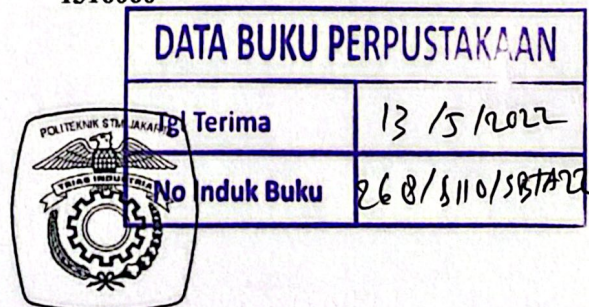 DATA BUKU PERPUSTAKAAN
Tgl Terima 13 /5 /2022
No Induk Buku
POLITEKNIK STMI JAKARTA
TRIAS INDUSTRIA